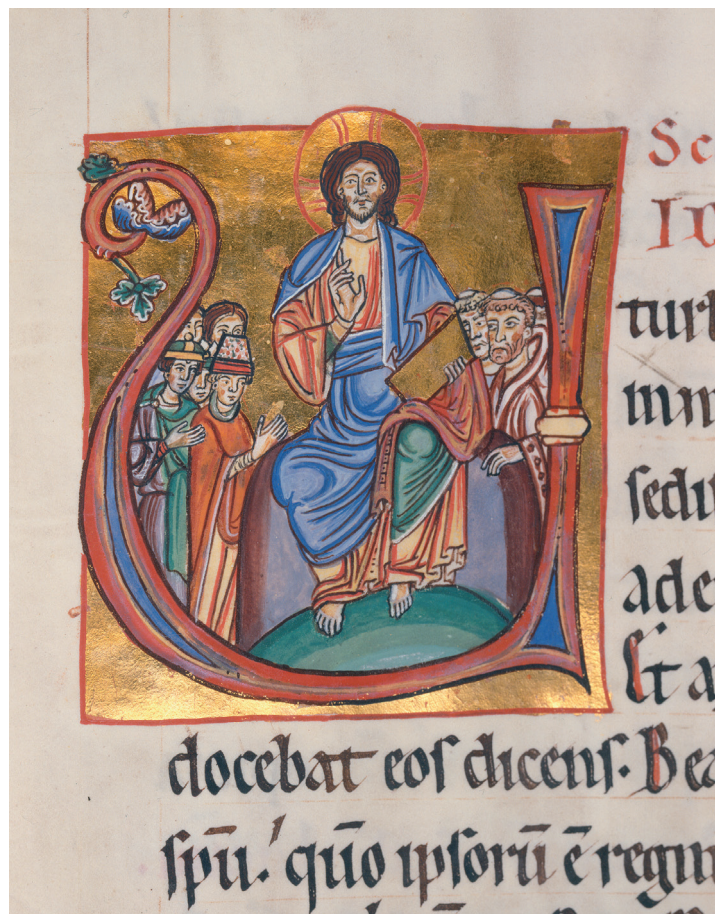 Sc
turb
ſedi
ade
Et a
docebat eoſ dicenſ. Bea
ſpū. quō ipſorū ē regn